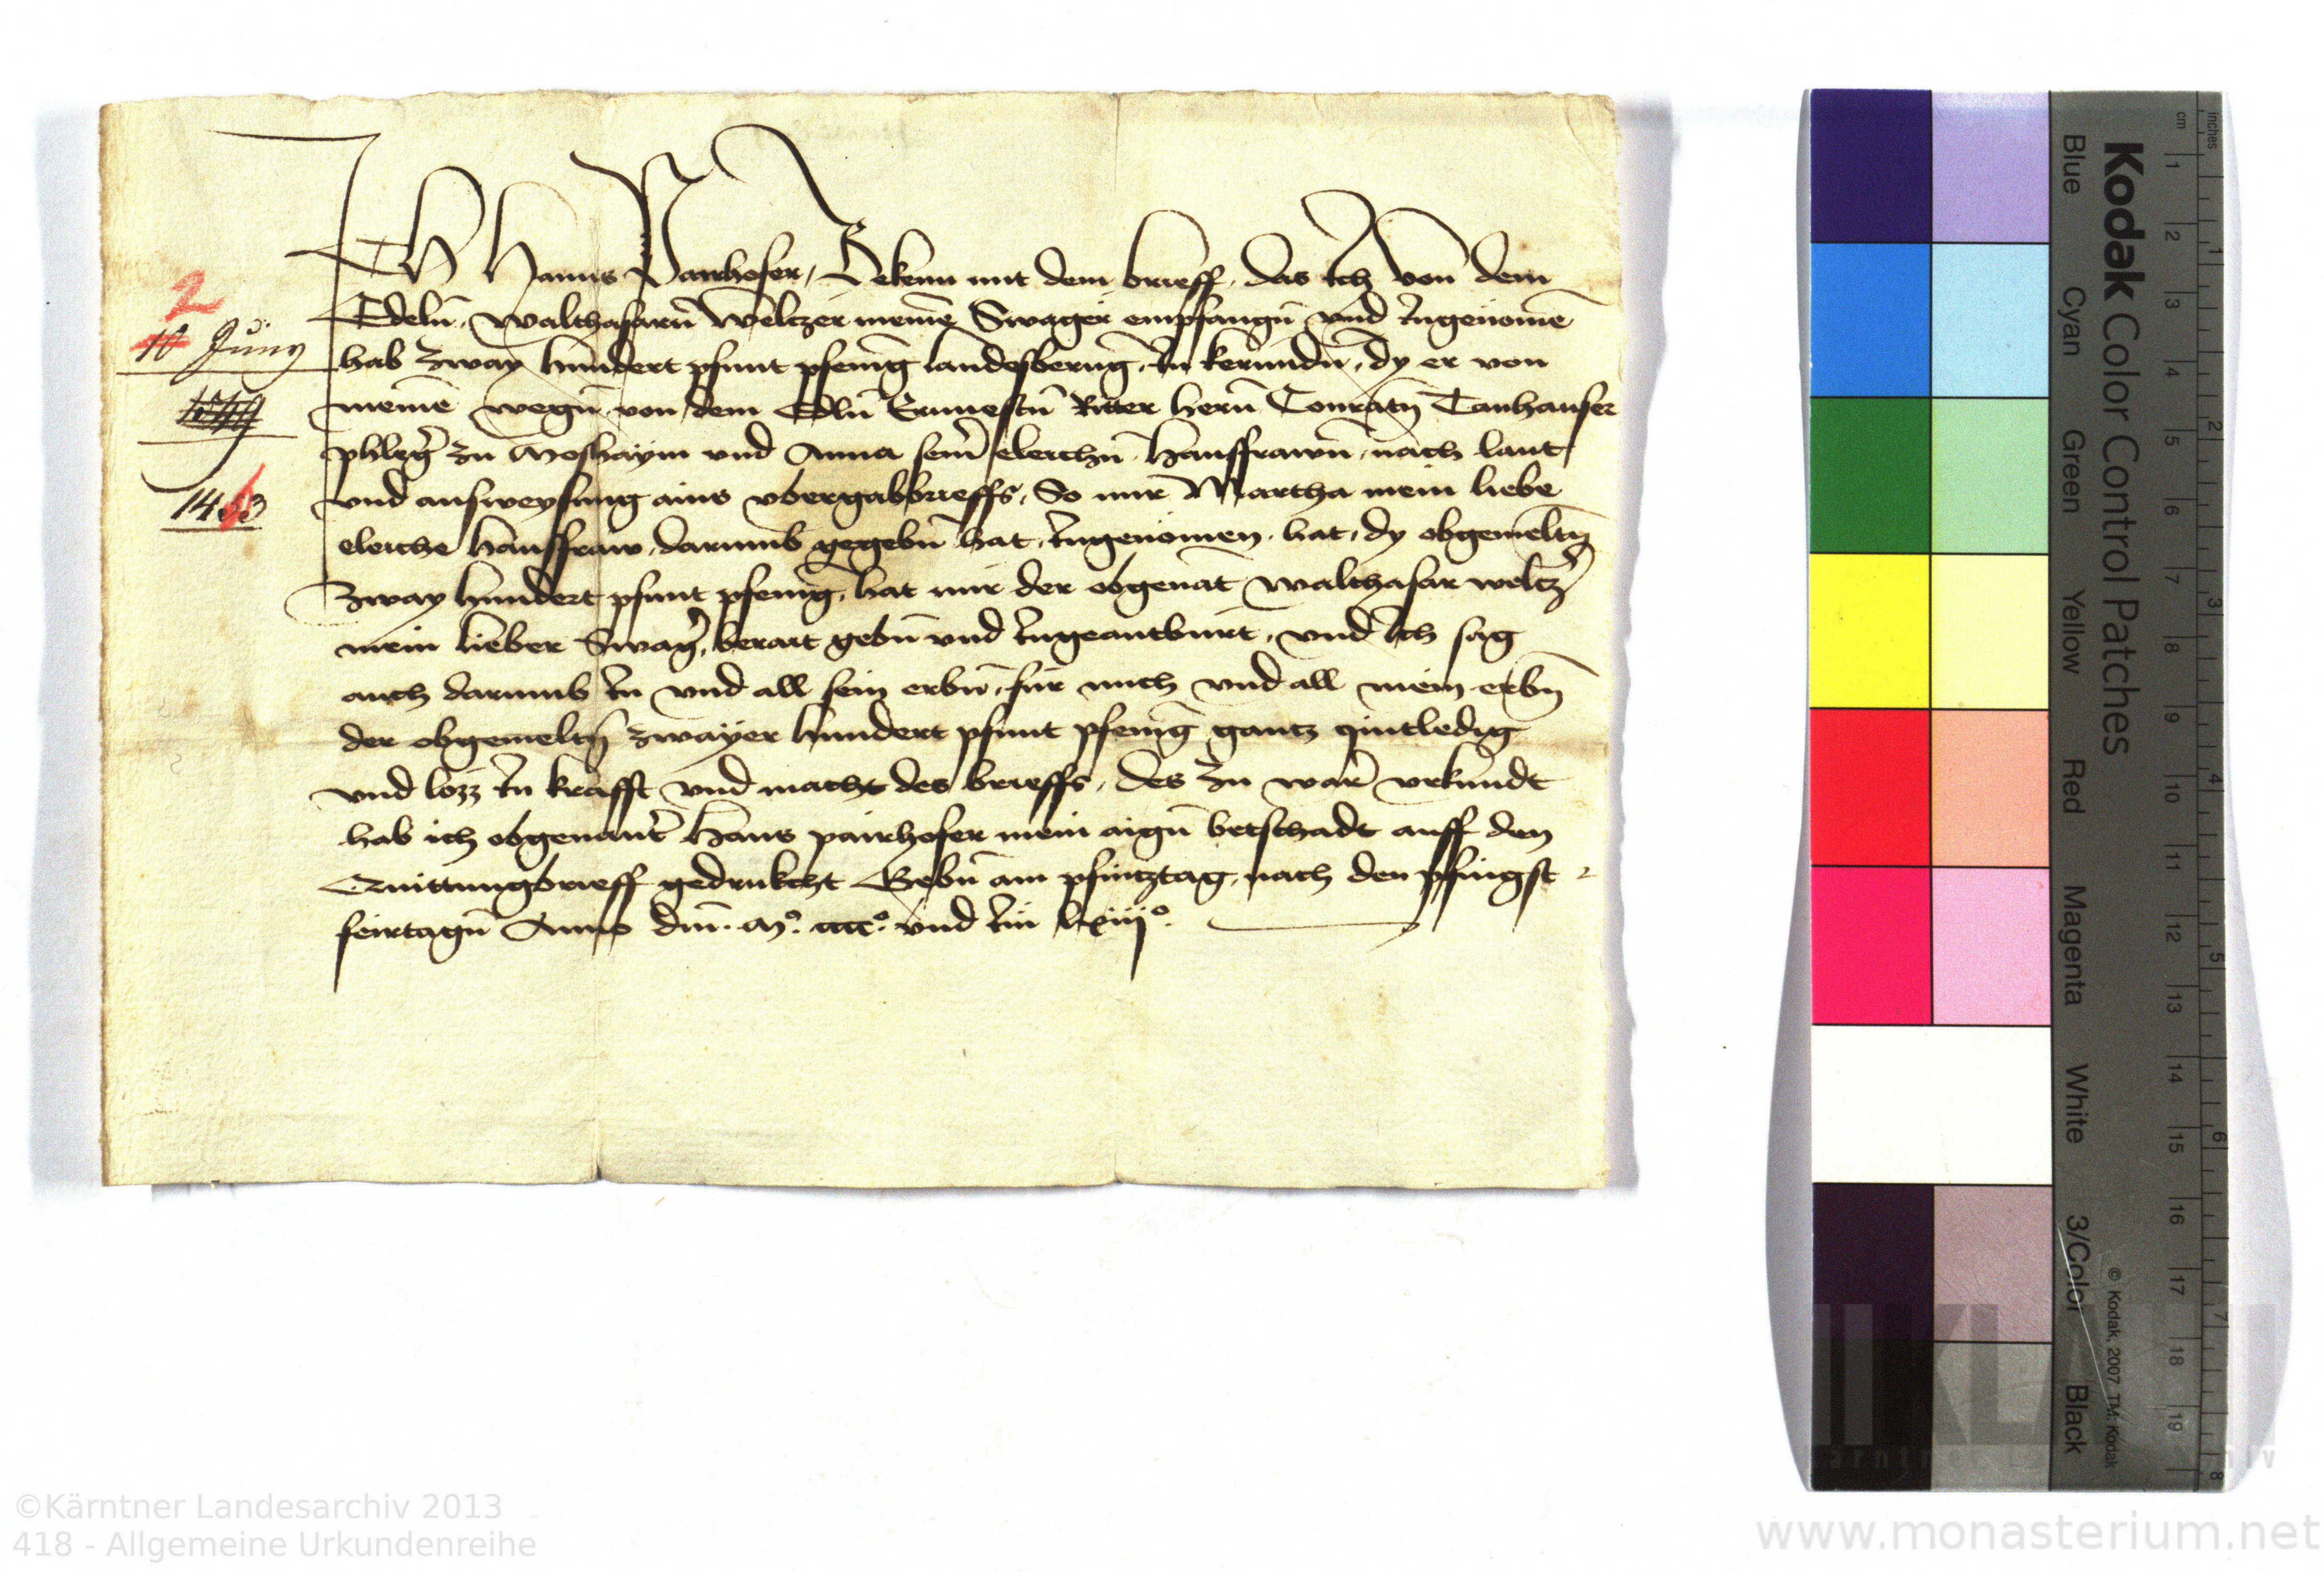 2
10 Juny
1453
Ich Hanns Pairhofer, Bekenn mit dem brieff, das ich von dem
Edeln̄, Walthasarn̄ Weltzer meinē Swager empfangn̄ vnd Ingenomē
hab zway hundert pfunt pfenīg landesberūg, In kerīndn̄, dy er von
meinē wegn̄ von dem Edln̄ Ernuestn̄ Ritter hern̄ Conratn̄ Tanhauser
phleg̉ zu Moshaym vnd Anna sein̉ eleichn̄ hausfrawn̄, nach laut
vnd ausweysung ains vbergabbrieffs, So mir Martha mein liebe
eleiche hausfraw, darumb gegebn̄ hat, Ingenomen hat, dy obgemeltn̄
zway hundert pfunt pfenīg, hat mir der obgenāt Walthasar weltz̉
mein lieber Swag̉, berait gebn̄ vnd Ingeantburt, vnd Ich sag
auch darumb In vnd all sein erbn̄, für mich vnd all mein erbn̄
der obgemeltn̄ zwayer hundert pfunt pfenīg gantz quittledig
vnd lozz In krafft vnd macht des brieffs, des zu war̉ vrkundt
hab ich obgenant̉ Hans pairhofer mein aign̄ betschadt auff den
Quittungbrieff gedrukcht Gebn̄ am pfintztag nach den pfingst
feirtagn̄ Anno dm̄. Mº. ccccº. vnd Im lxiiijº.
Kodak Color Control Patches
Blue Cyan Green Yellow Red Magenta White 3/Color Black
© Kodak, 2007 TM: Kodak
cm 1 2 3 4 5 6 7 8 9 10 11 12 13 14 15 16 17 18 19
inches 1 2 3 4 5 6 7 8
©Kärntner Landesarchiv 2013
418 - Allgemeine Urkundenreihe
www.monasterium.net